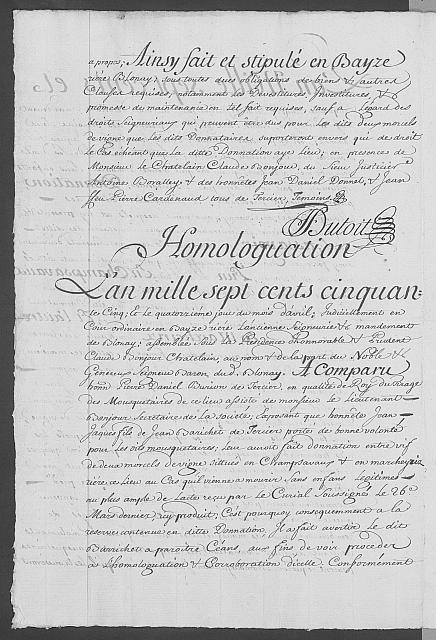 apropos; Ainsy fait et stipulé en Bayze
riére Blonay; sous toutes dues obligations de biens & autres
Clauses requises, notamment les Devestitures, Investitures, &
promesse de maintenance en tel fait requises, sauf a l'egard des
droits Seigneuriaux qui peuvent être dus pour les dits deux morcels
de vigne que les dits Donnataires suporteront envers qui de droit
le Cas échéant que la ditte Donnation aye lieu; en presences de
Monsieur le Chatelain Claude Bonjour, du Sieur Justicier
Antoine Boralley, & des honnêtes Jean Daniel Donnet, & Jean
Pierre Cardenaud tous de Tercier, Temoins
Dutoit
Homologuation
L'an mille sept cents cinquan=
te Cinq, & le quatorzieme jour du mois d'avril; Judiciellement en
Cour ordinaire en Bayze riére l'ancienne Seigneurie & mandement
de Blonay; assemblée sous la Presidence d'honnorable & Prudent
Claude Bonjour Chatelain, au nom & de la part du Noble &
Genereux Seigneur Baron du d. Blonay. A Comparu
honn. Pierre Daniel de Tercier, en qualité de Roy du
des Mousquetaires de ce lieu assisté de monsieur le Lieutenant
Bonjour Secretaire de la societé; Exposant que honnête Jean
Jaques fils de Jean Barichet de Tercier porté de bonne volonté
pour les dits mousquetaires; leur auroit fait donnation entre vif
de deux morcels de vigne sittués en Champsavaux & en
riére ce Lieu au Cas qu'il vienne a mourir Sans enfans Legitimes
au plus ample de l'acte reçu par le Curial Soussigné le 26e
Mars dernier icy produit; C'est pourquoy consequemment a la
reserve contenue en ditte Donnation, Il a fait avertir le dit
Barrichet a paroitre Céans, aux fins de voir proceder
a l'homologuation & Corroboration d'icelle. Conformément